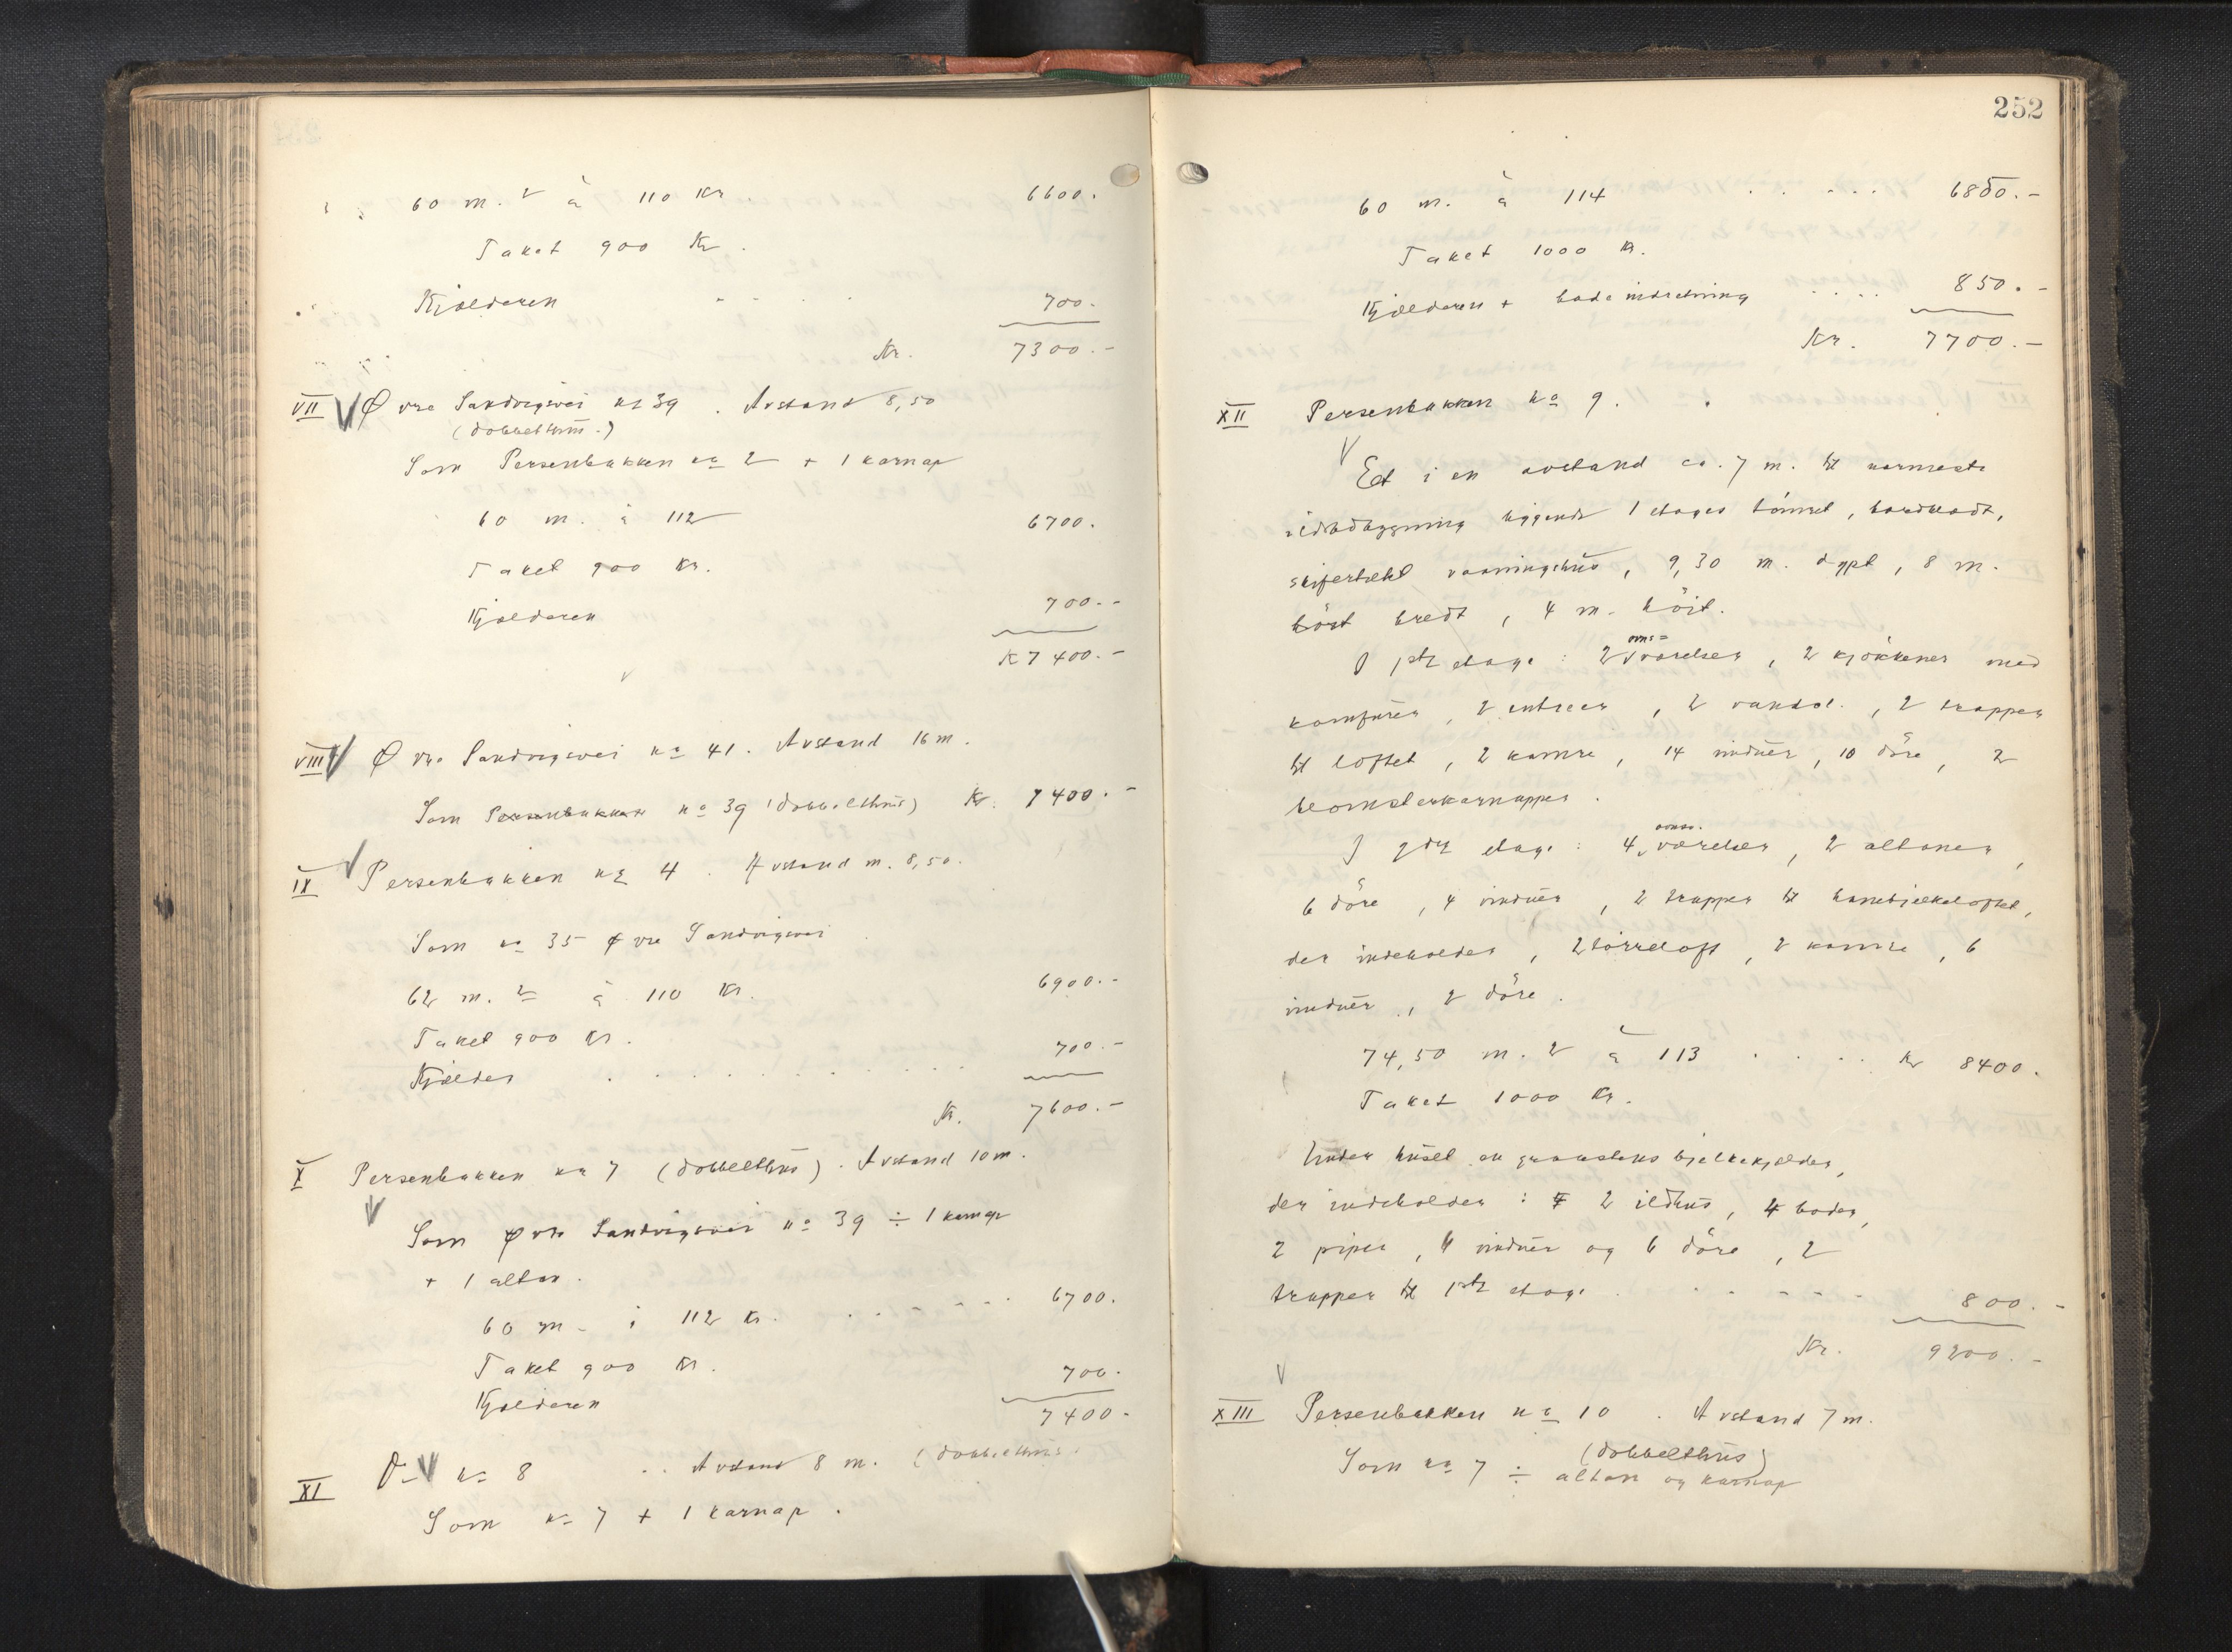 60 m.² à 110 Kr. 6600.
Taket 900 Kr.
Kjælderen 700.-
Kr. 7300.-
VII Øvre Sandvigsvei no 39. Avstand 8,50
(dobbelthus.)
Som Persenbakken no 2 + 1 karnap
60 m. à 112 6700.
Taket 900 Kr.
Kjælderen 700.-
K 7400.-
VIII Øvre Sandvigsvei no 41. Avstand 16 m.
Som Persenbakken no 39 (dobbelthus) Kr. 7400.-
IX Persenbakken no 4. Avstand m. 8,50.
Som no 35 Øvre Sandvigsvei
62 m.² à 110 Kr. 6900.-
Taket 900 Kr.
Kjælder 700.-
Kr. 7600.-
X Persenbakken no 7 (dobbelthus). Avstand 10 m.
Som Øvre Sandvigsvei no 39 ÷ 1 karnap
+ 1 altan.
60 m. à 112 Kr. 6700.
Taket 900 Kr.
Kjælderen 700.
7400-
XI Do no 8 .. Avstand 8 m. (dobbelthus.
Som no 7 + 1 karnap.
252
60 m. à 114 6850.-
Taket 1000 Kr.
Kjælderen + badeindretning 850.-
Kr. 7700.-
XII Persenbakken no 9.
Et i en avstand ca. 7 m. til nærmeste
ildstedbygning liggende 1 etages tömret, bordklædt,
skifertækt vaaningshus, 9,30 m. dypt, 8 m.
bredt, 4 m. höit.
I 1ste etage: 2 ovns= værelser, 2 kjökkener med
komfurer, 2 entreer, 2 vandcl., 2 trapper
til loftet, 2 kamre, 14 vinduer, 10 döre, 2
blomsterkarnapper.
I 2den etage: 4 ovns. værelser, 2 altaner,
6 döre, 4 vinduer, 2 trapper til hanebjelkeloftet,
der indeholder, 2 törreloft, 2 kamre, 6
vinduer, 2 döre.
74,50 m.² à 113 . . . . Kr 8400.
Taket 1000 Kr.
Under huset en graastens bjelkekjelder,
der indeholder: 2 ildhus, 4 boder,
2 piper, 4 vinduer og 6 döre, 2
trapper til 1ste etage 800.-
Kr. 9200.-
XIII Persenbakken no 10. Avstand 7 m.
(dobbelthus)
Som no 7 ÷ altan og karnap